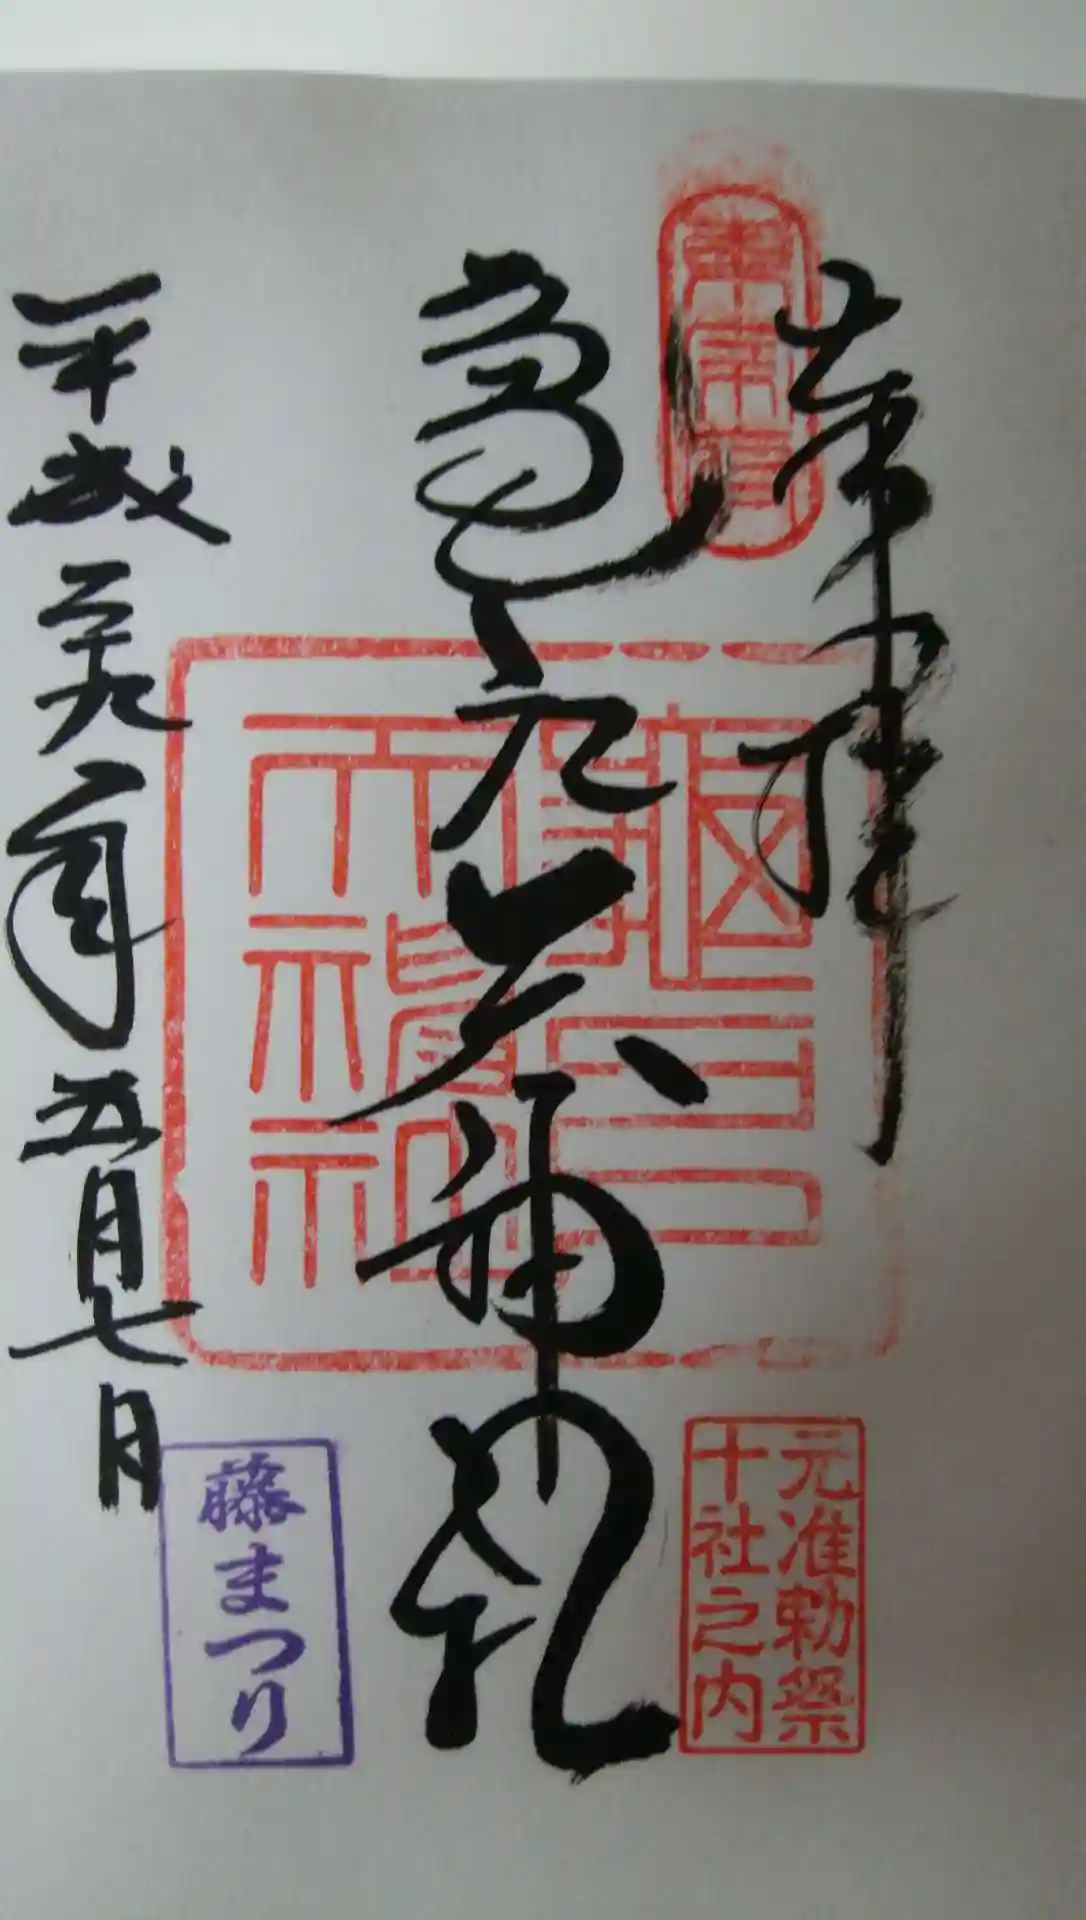 奉拝
東宰府
亀戸天神社
元准勅祭
十社之内
平成二十九年五月七日
藤まつり